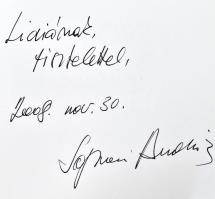 Lidiának,
tisztelettel,
2008. nov. 30.
Soproni András